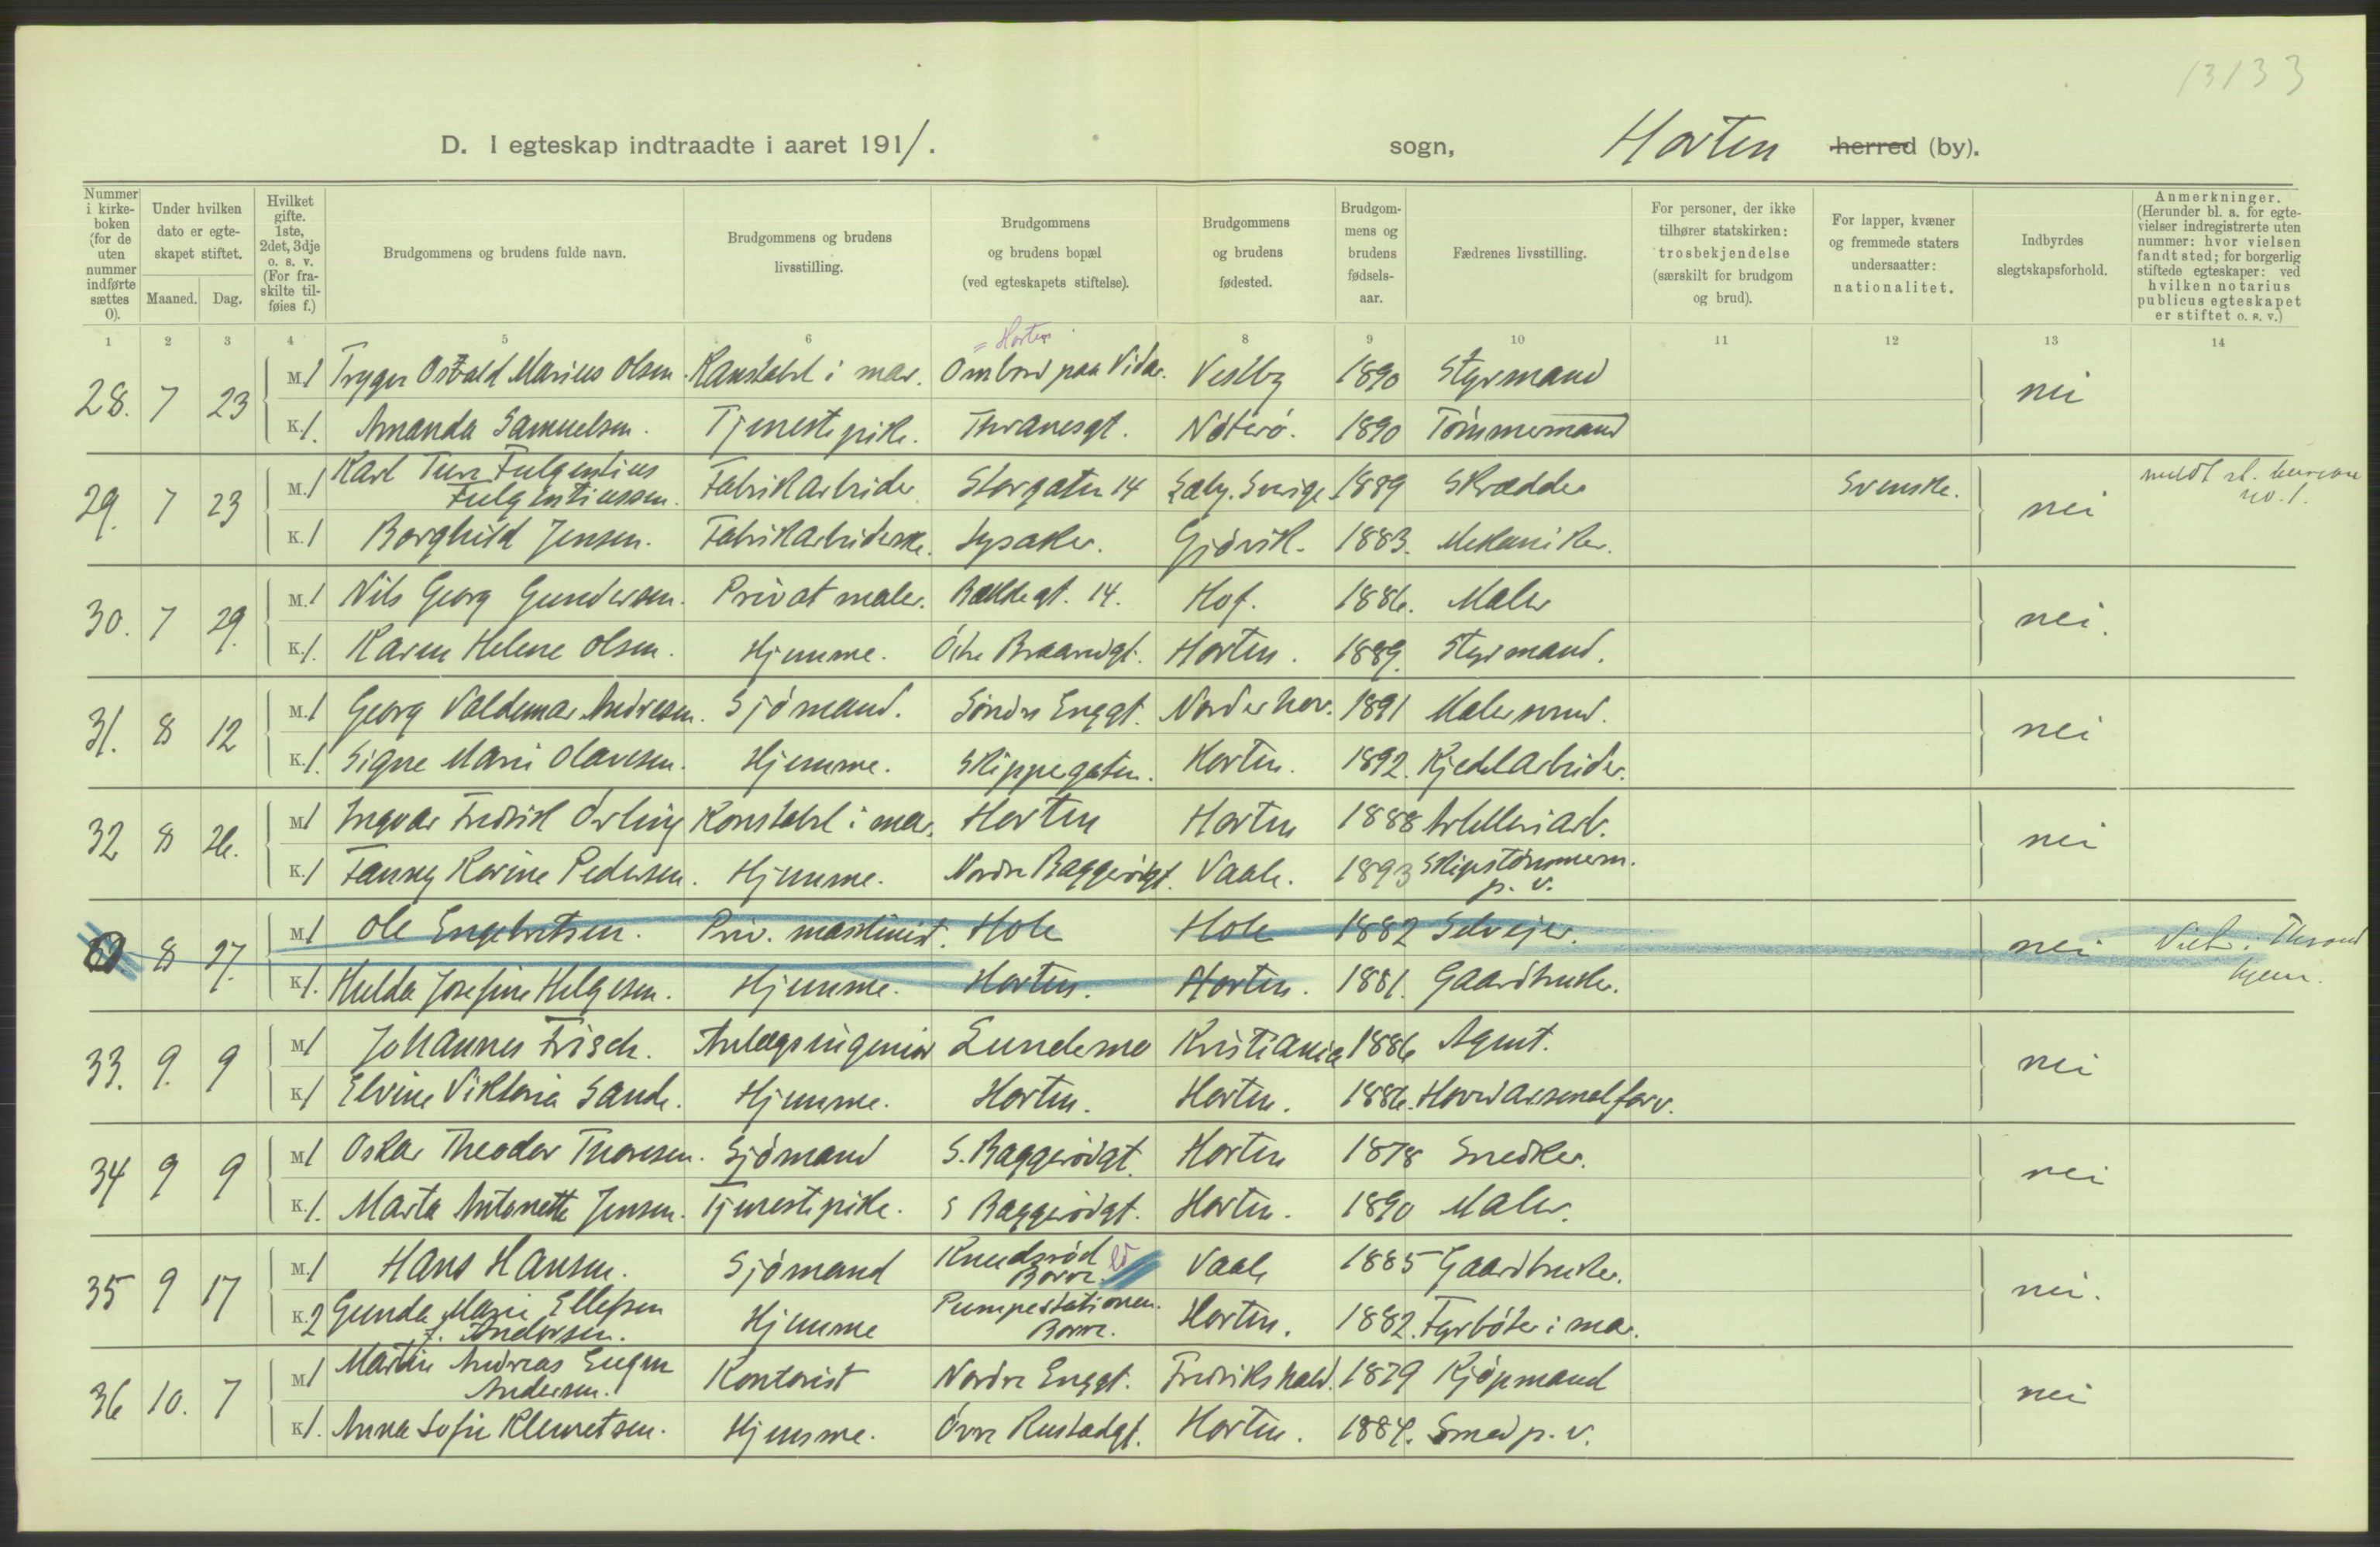 13133
D. I egteskap indtraadte i aaret 1911. sogn, Horten herred (by).
Nummer i kirkeboken (for de uten nummer indførte sættes 0).
Under hvilken dato er egteskapet stiftet.
Maaned. Dag.
Hvilket gifte. 1ste, 2det, 3dje o. s. v. (For fraskilte tilføies f.)
Brudgommens og brudens fulde navn.
Brudgommens og brudens livsstilling.
Brudgommens og brudens bopæl (ved egteskapets stiftelse).
Brudgommens og brudens fødested.
Brudgommens og brudens fødselsaar.
Fædrenes livsstilling.
For personer, der ikke tilhører statskirken: trosbekjendelse (særskilt for brudgom og brud).
For lapper, kvæner og fremmede staters undersaatter: nationalitet.
Indbyrdes slegtskapsforhold.
Anmerkninger. (Herunder bl. a. for egtevielser indregistrerte uten nummer: hvor vielsen fandt sted; for borgerlig stiftede egteskaper: ved hvilken notarius publicus egteskapet er stiftet o. s. v.)
1 2 3 4 5 6 = Horten 8 9 10 11 12 13 14
28. 7 23 M. 1 Trygve Osvald Marius Olsen. Konstabel i mar. Ombord paa Vidar. Vestby 1890 Styrmand nei
K. 1. Amanda Samuelsen. Tjenestepike. Thranesgt. Nøterø. 1890 Tømmermand
29. 7 23 M. 1 Karl Ture Fulgentius Fulgentiussen. Fabrikarbeider Storgaten 14 Sæby. Sverige 1889 Skrædder Svensk. nei meldt st. bureau no. 1.
K. 1 Borghild Jensen. Fabrikarbeiderske. Lysaker. Gjøvik. 1883. Mekaniker.
30. 7 29. M. 1 Nils Georg Gundersen. Privat maler. Bakkegt. 14. Hof. 1886. Maler nei.
K. 1. Karen Helene Olsen. Hjemme. Østre Braarudgt. Horten. 1889. Styrmand.
31. 8 12 M. 1 Georg Valdemar Andresen. Sjømand. Søndre Enggt. Norderhov. 1891 Malersvend. nei
K. 1. Signe Marie Olavesen. Hjemme. Skippergaten. Horten. 1892. Kjedelarbeider.
32 8 26. M. 1 Ingvar Fredrik Ørling Konstabel i mar. Horten Horten 1888 Artilleriarb. nei
K. 1 Fanny Karine Pedersen. Hjemme. Nordre Baggerødgt. Vaale. 1893 Skipstømmerm. p. v.
0. 8 27. M. 1 Ole Engebretsen. Priv. maskinist. Hole Hole 1882 Selveier. nei Viet i Thrond hjem.
K. 1. Hulda Josefine Helgesen. Hjemme. Horten. Horten. 1881. Gaardbruker.
33. 9. 9 M. 1 Johannes Frisch. Anlægsingeniør Lundemo Kristiania 1886 Agent. nei
K. 1 Elvine Viktoria Sande. Hjemme. Horten. Horten. 1886. Hovedarsenalforv.
34 9 9 M. 1 Oskar Theodor Thoresen. Sjømand S. Baggerødgt. Horten 1878 Snedker. nei
K. 1. Marta Antonette Jensen. Tjenestepike. S Baggerødgt. Horten. 1890 Maler.
35 9 17 M. 1 Hans Hansen. Sjømand Knudsrød Borre. Vaale 1885 Gaardbruker. nei.
K. 2 Gunda Marie Ellefsen f. Andersen. Hjemme Pumpestationen. Borre. Horten. 1882. Fyrbøter i mar.
36 10. 7 M. 1 Martin Andreas Eugen Andersen. Kontorist Nordre Enggt. Fredrikshald. 1879 Kjøpmand nei
K. 1. Anna Sofie Klemetsen. Hjemme. Øvre Rustadgt. Horten. 1884. Smed p. v.